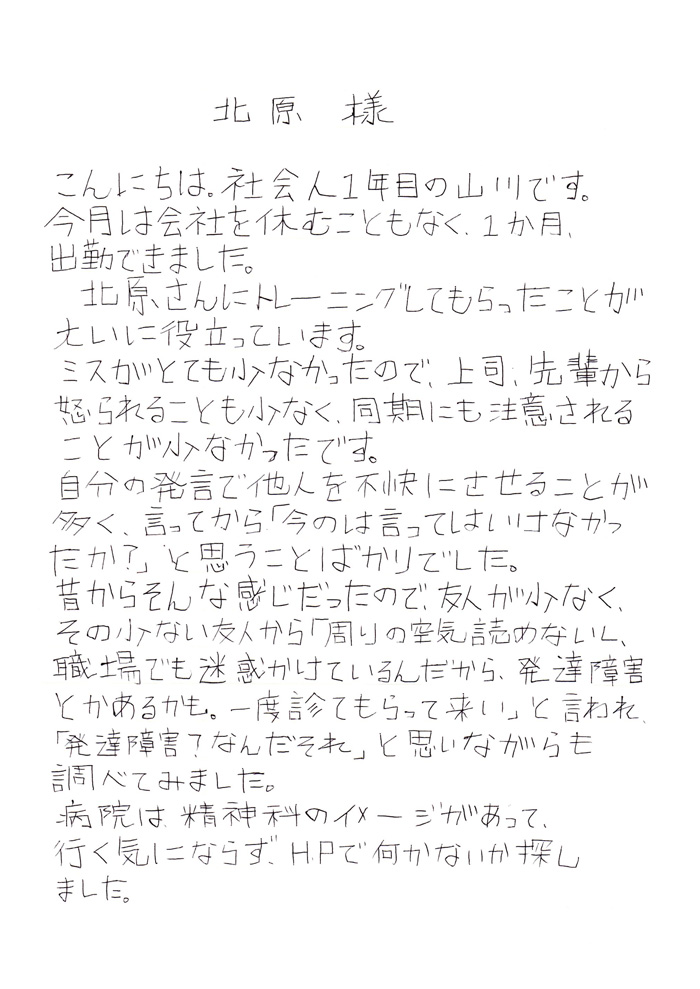 北原 様
こんにちは。社会人1年目の山川です。
今月は会社を休むこともなく、1か月、
出勤できました。
北原さんにトレーニングしてもらったことが
大いに役立っています。
ミスがとても少なかったので、上司、先輩から
怒られることも少なく、同期にも注意される
ことが少なかったです。
自分の発言で他人を不快にさせることが
多く、言ってから「今のは言ってはいけなかっ
たか?」と思うことばかりでした。
昔からそんな感じだったので、友人が少なく、
その少ない友人から「周りの空気読めないし、
職場でも迷惑かけているんだから、発達障害
とかあるかも。一度診てもらって来い」と言われ、
「発達障害?なんだそれ」と思いながらも
調べてみました。
病院は、精神科のイメージがあって、
行く気にならず、H.Pで何かないか探し
ました。